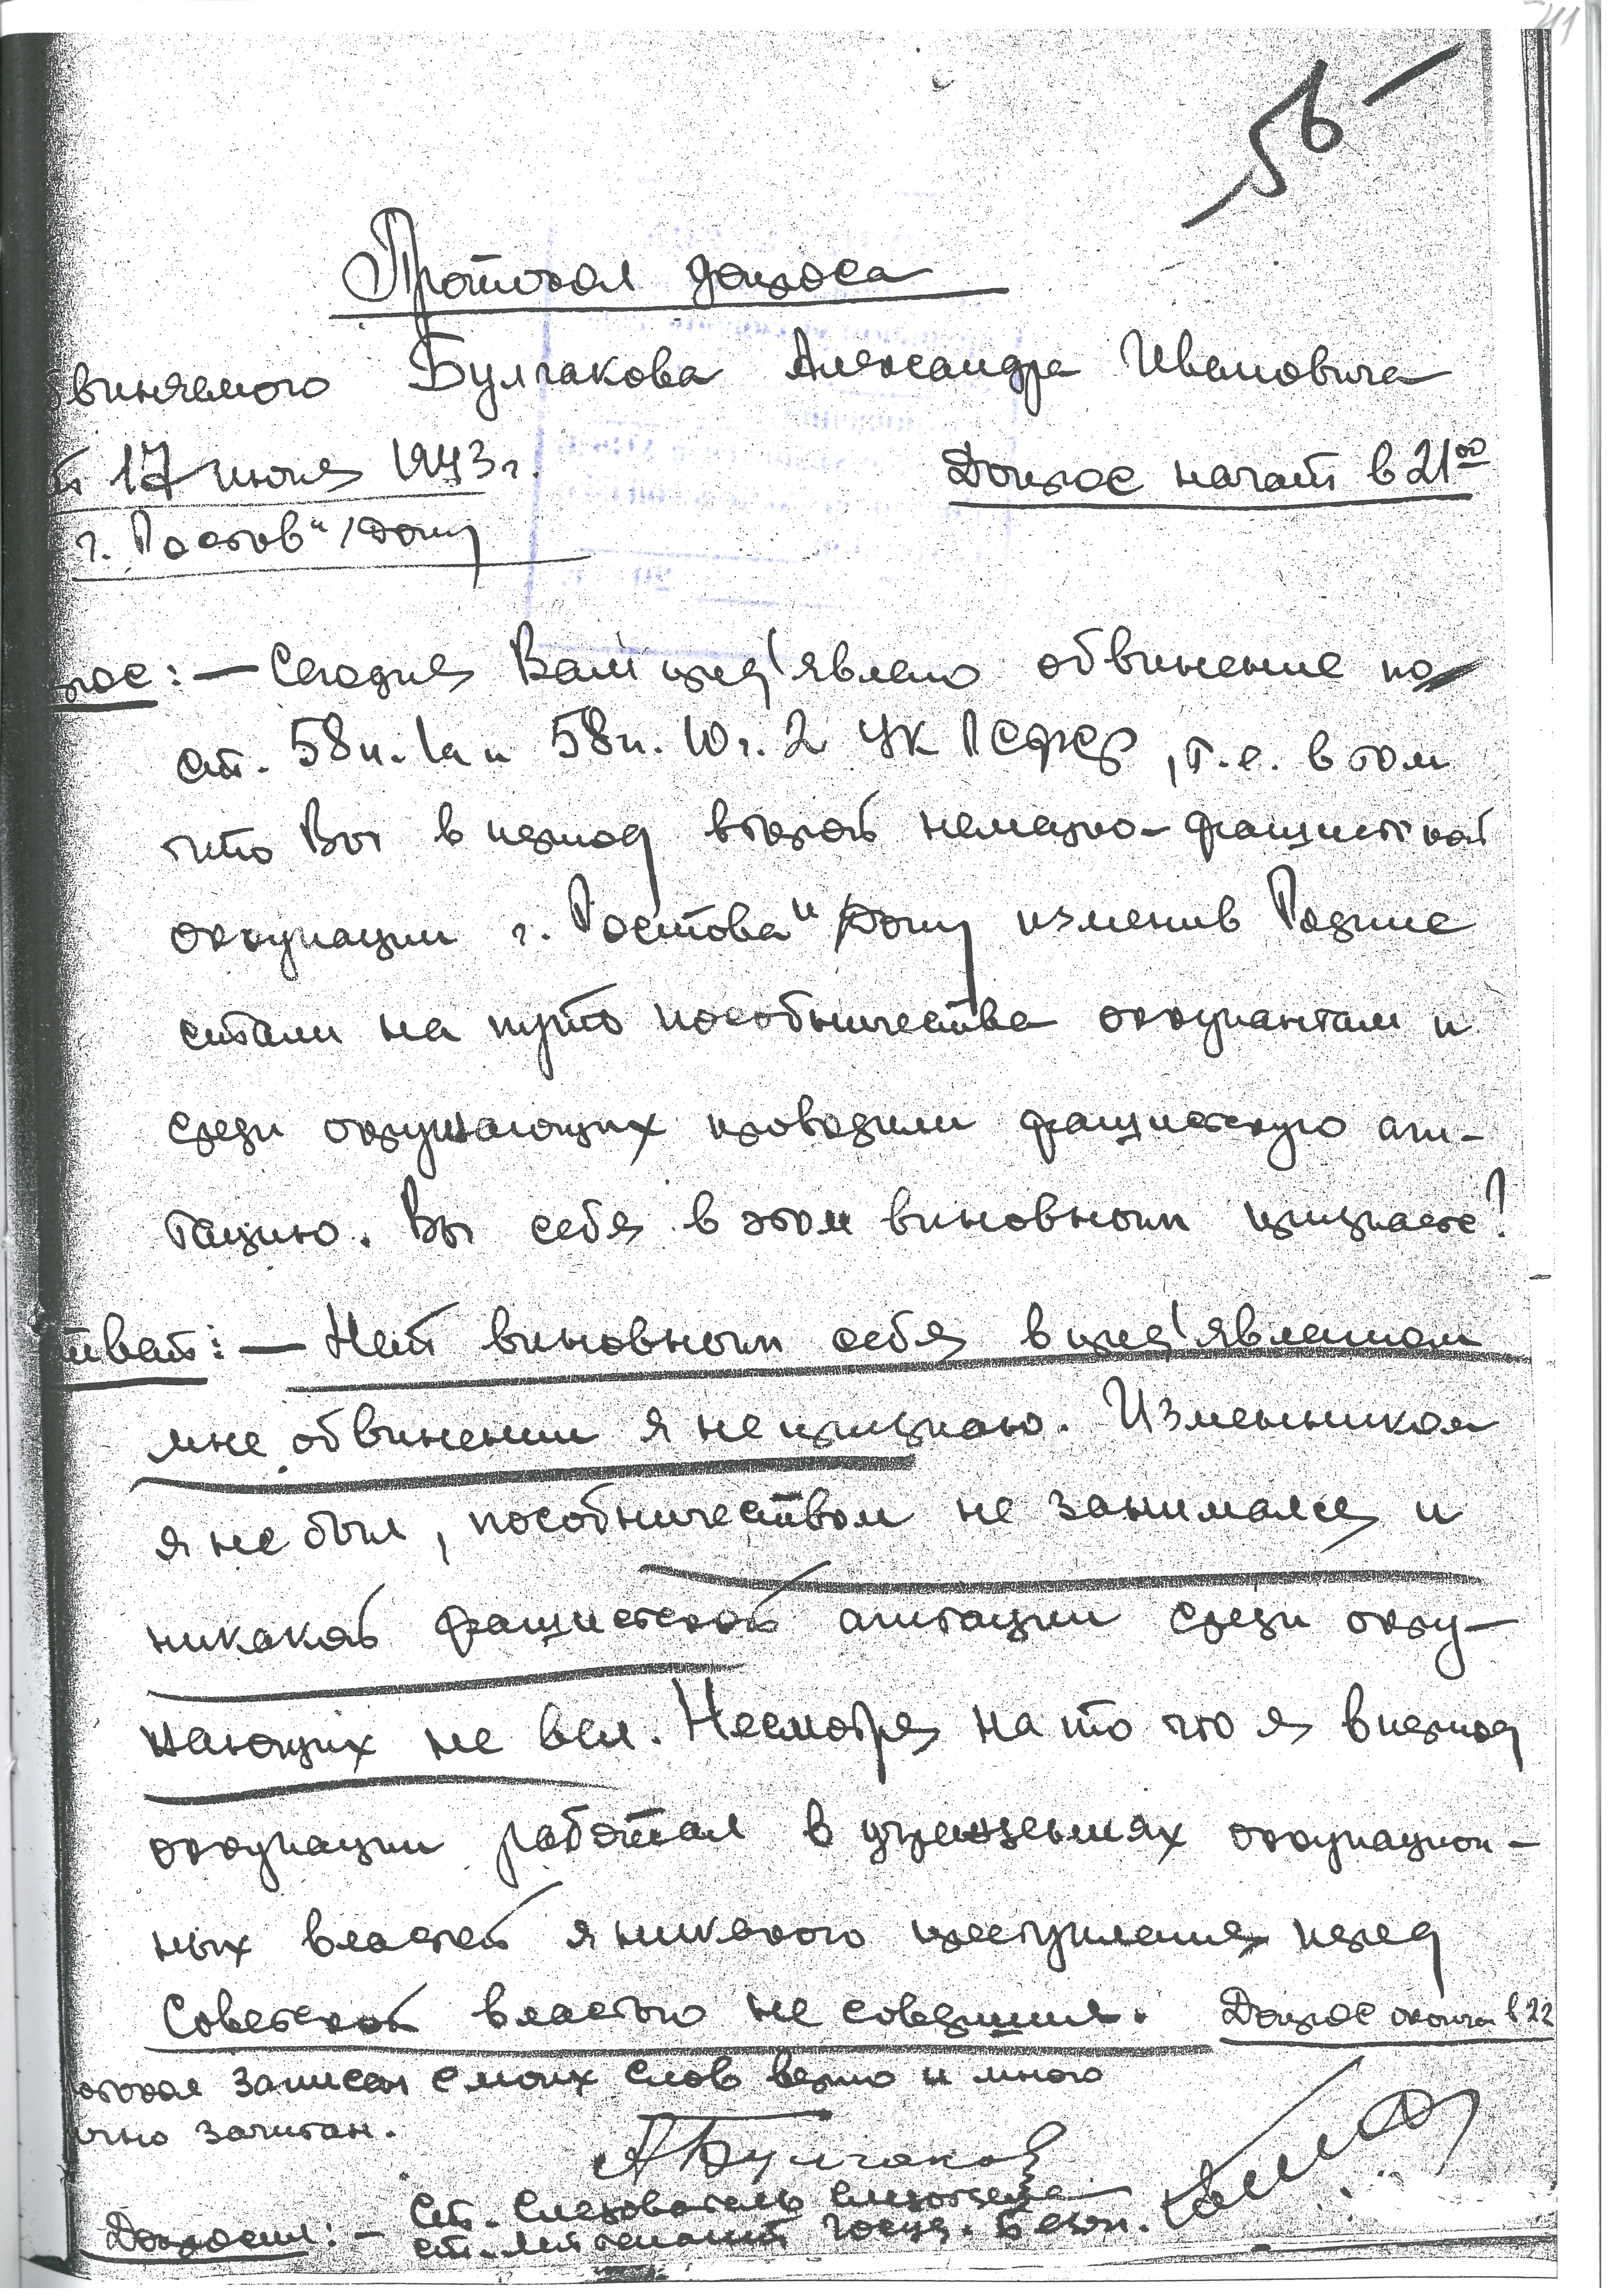 56
Протокол допроса
виняемого Булгакова Александра Ивановича
17 июля 1943 г. Допрос начат в 21⁰⁰
г. Ростов н/Дону
рос: — Сегодня Вам пред'явлено обвинение по
ст. 58 п. 1а и 58 п. 10 ч. 2 УК РСФСР, т.е. в том
что Вы в период второй немецко-фашистской
оккупации г. Ростова н/Дону изменив Родине
стали на путь пособничества оккупантам и
среди окружающих проводили фашистскую аги-
тацию. Вы себя в этом виновным признаете?
твет: — Нет виновным себя в пред'явленном
мне обвинении я не признаю. Изменником
я не был, пособничеством не занимался и
никакой фашистской агитации среди окру-
жающих не вел. Несмотря на то что я в период
оккупации работал в учреждениях оккупацион-
ных властей я никакого преступления перед
Советской властью не совершил. Допрос окончен в 22
ротокол записан с моих слов верно и мною
ично зачитан.
АБулгаков
Ст. Следователь
Допросил: — ст. лейтенант госуд. безоп.